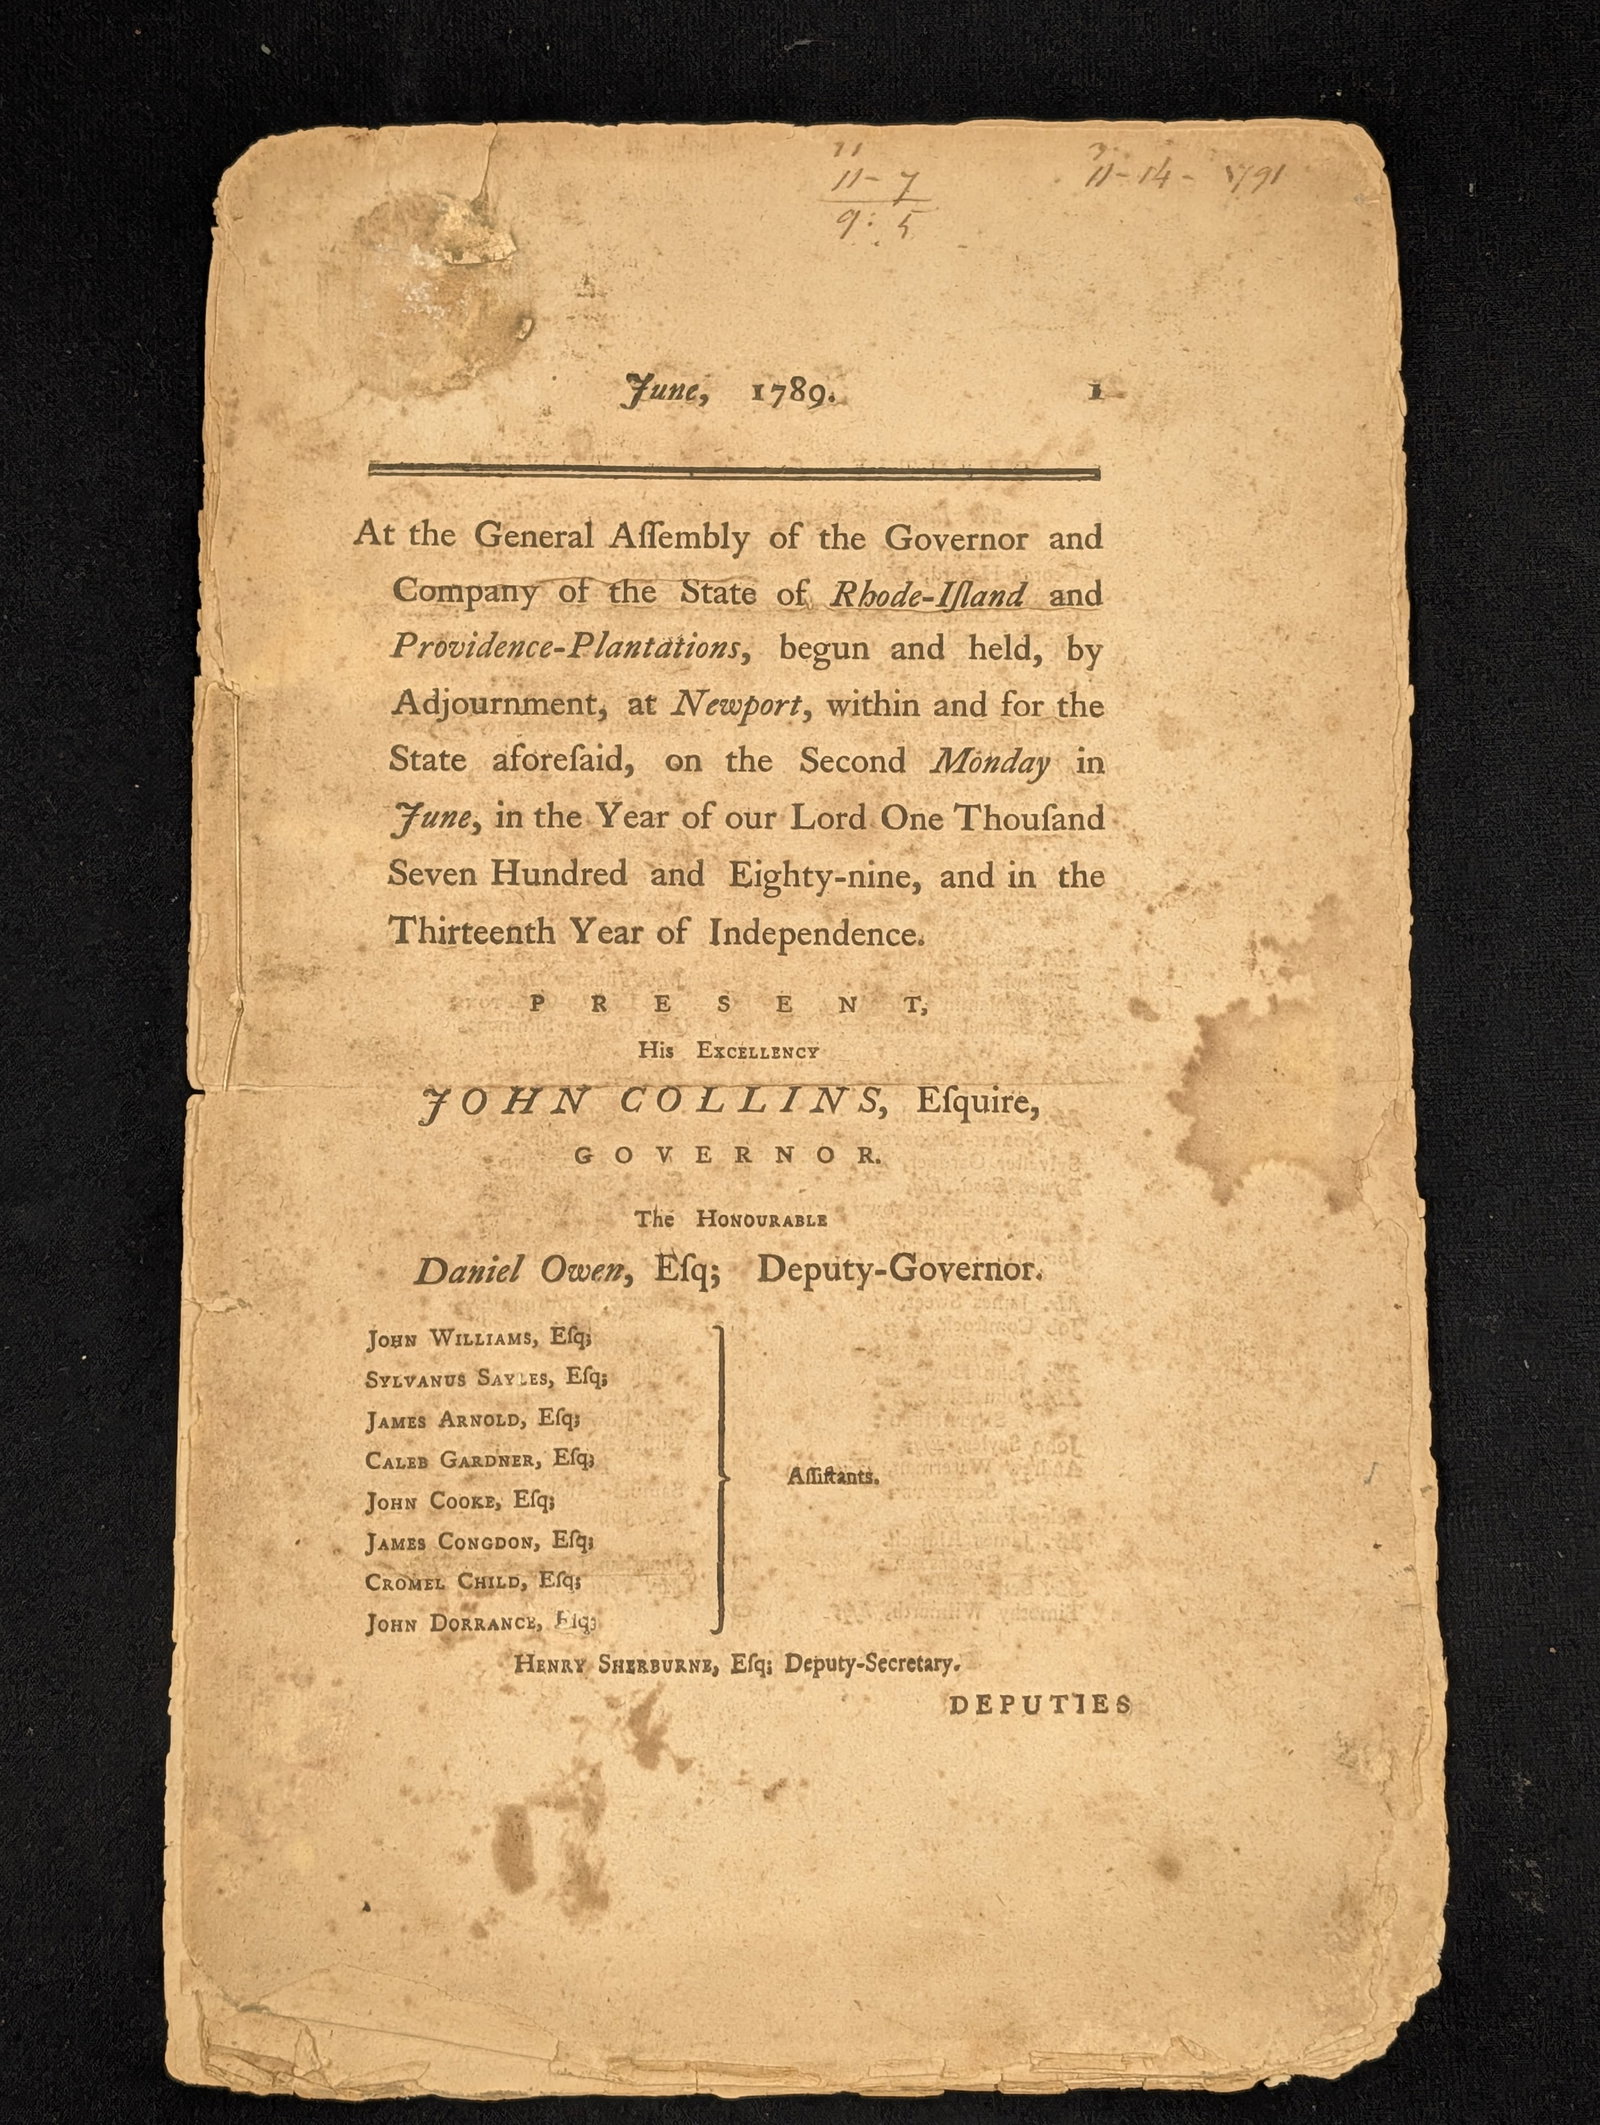 11
11-7
9: 5
11-14- 1791
June, 1789.
1
At the General Aſſembly of the Governor and
Company of the State of Rhode-Iſland and
Providence-Plantations, begun and held, by
Adjournment, at Newport, within and for the
State aforeſaid, on the Second Monday in
June, in the Year of our Lord One Thouſand
Seven Hundred and Eighty-nine, and in the
Thirteenth Year of Independence.
P R E S E N T,
His EXCELLENCY
JOHN COLLINS, Eſquire,
GOVERNOR.
The HONOURABLE
Daniel Owen, Eſq; Deputy-Governor.
JOHN WILLIAMS, Eſq;
SYLVANUS SAYLES, Eſq;
JAMES ARNOLD, Eſq;
CALEB GARDNER, Eſq;
JOHN COOKE, Eſq;
JAMES CONGDON, Eſq;
CROMEL CHILD, Eſq;
JOHN DORRANCE, Eſq;
Aſſiſtants.
HENRY SHERBURNE, Eſq; Deputy-Secretary.
DEPUTIES